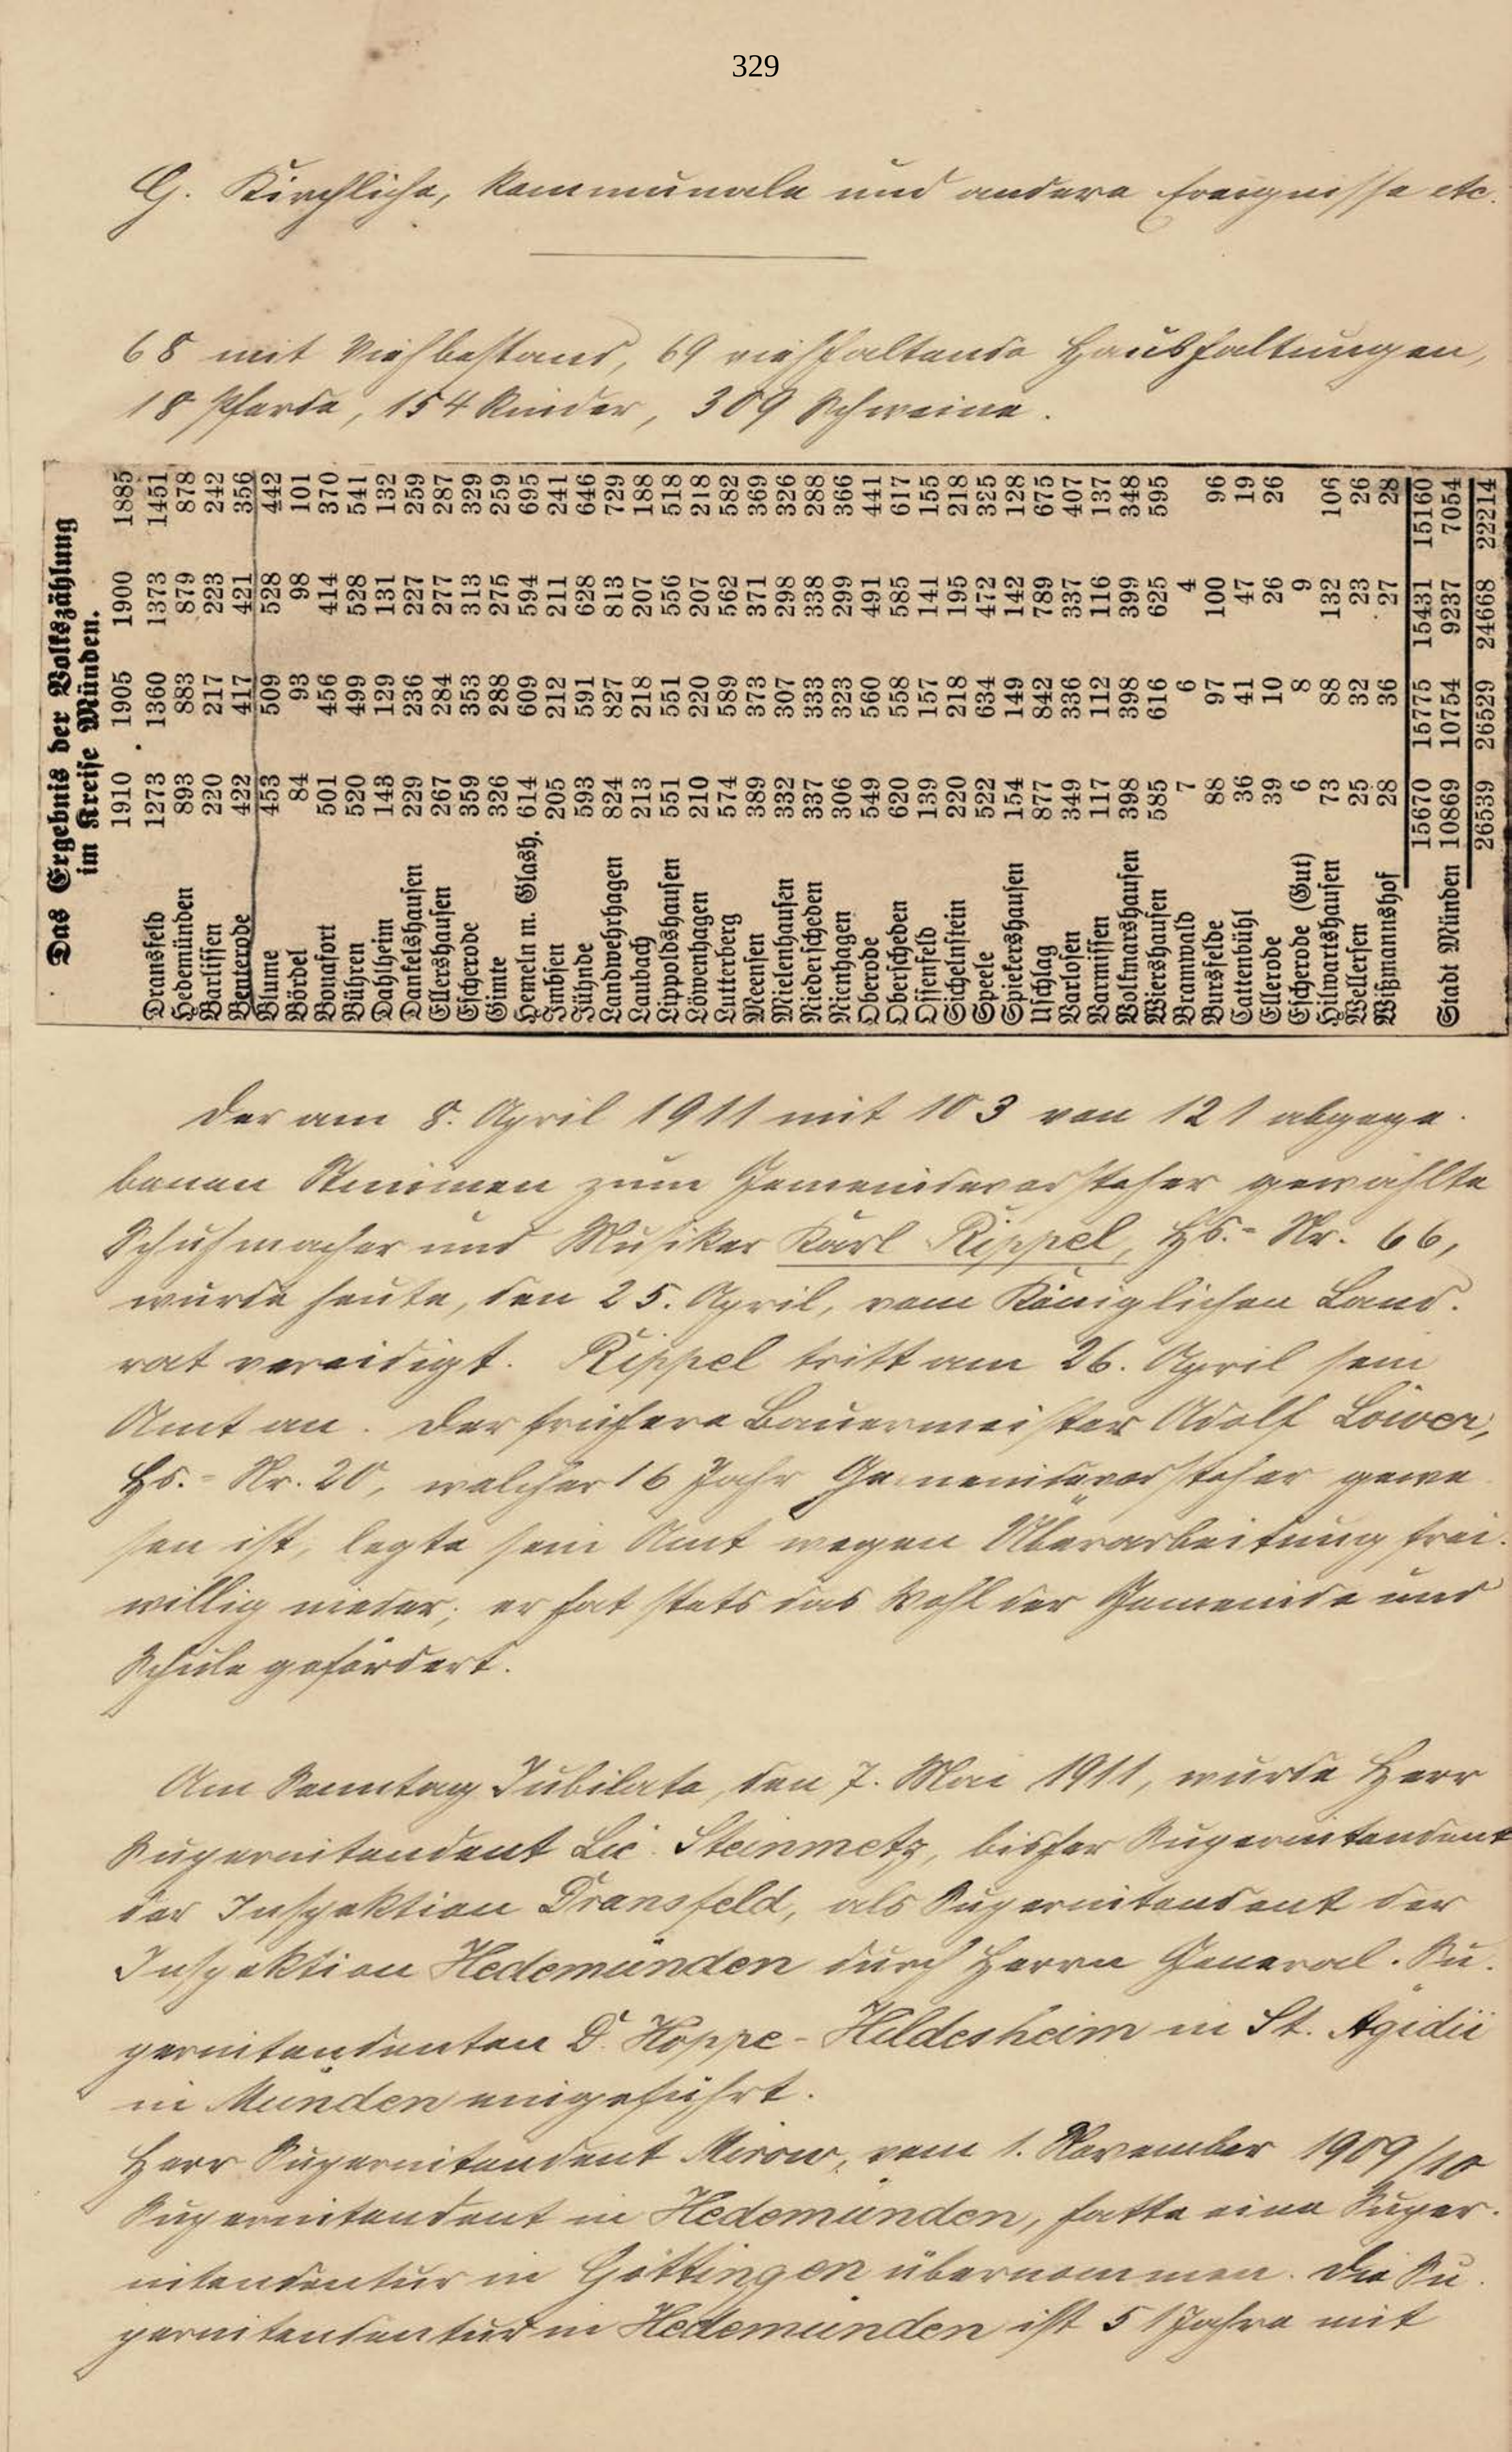 329
G. Kirchliche, kommunale und andere Ereignisse etc.
68 mit Viehbestand, 69 viehhaltende Haushaltungen,
18 Pferde, 154 Rinder, 309 Schweine.
Das Ergebnis der Volkszählung
im Kreise Münden.
1910 1905 1900 1885
Dransfeld 1273 1360 1373 1451
Hedemünden 893 883 879 878
Barlissen 220 217 223 242
Benterode 422 417 421 356
Blume 453 509 528 442
Bördel 84 93 98 101
Bonafort 501 456 414 370
Bühren 520 499 528 541
Dahlheim 143 129 131 132
Dankelshausen 229 236 227 259
Ellershausen 267 284 277 287
Escherode 359 353 313 329
Gimte 326 288 275 259
Hemeln m. Glash. 614 609 594 695
Imbsen 205 212 211 241
Jühnde 593 591 628 646
Landwehrhagen 824 827 813 729
Laubach 213 218 207 188
Lippoldshausen 551 551 556 518
Löwenhagen 210 220 207 218
Lutterberg 574 589 562 582
Meensen 389 373 371 369
Mielenhausen 332 307 298 326
Niederscheden 337 333 338 288
Nienhagen 306 323 299 366
Oberode 549 560 491 441
Oberscheden 620 558 585 617
Ossenfeld 139 157 141 155
Sichelnstein 220 218 195 218
Speele 522 634 472 325
Spiekershausen 154 149 142 128
Uschlag 877 842 789 675
Varlosen 349 336 337 407
Varmissen 117 112 116 137
Volkmarshausen 398 398 399 348
Wiershausen 585 616 625 595
Bramwald 7 6 4
Bursfelde 88 97 100 96
Cattenbühl 36 41 47 19
Ellerode 39 10 26 26
Escherode (Gut) 6 8 9
Hilwartshausen 73 88 132 106
Wellersen 25 32 23 26
Wißmannshof 28 36 27 28
15670 15775 15431 15160
Stadt Münden 10869 10754 9237 7054
26539 26529 24668 22214
Der am 8. April 1911 mit 103 von 121 abgege-
benen Stimmen zum Gemeindevorsteher gewählte
Schuhmacher und Musiker Karl Rippel, Hs.- Nr. 66,
wurde heute, den 25. April, vom Königlichen Land-
rat vereidigt. Rippel tritt am 26. April sein
Amt an. Der frühere Bauermeister Adolf Löwer,
Hs.- Nr. 20, welcher 16 Jahr Gemeindevorsteher gewe
sen ist, legte sein Amt wegen Überarbeitung frei-
willig nieder; er hat stets das Wohl der Gemeinde und
Schule gefördert.
Am Sonntag Jubilate, den 7. Mai 1911, wurde Herr
Superintendent Lic. Steinmetz, bisher Superintendent
der Inspektion Dransfeld, als Superintendent der
Inspektion Hedemünden durch Herrn General-Su-
perintendenten D. Hoppe-Hildesheim in St. Ägidii
in Münden eingeführt.
Herr Superintendent Mirow, vom 1. November 1909/10
Superintendent in Hedemünden, hatte eine Super-
intendentur in Göttingen übernommen. Die Su-
perintendentur in Hedemünden ist 51 Jahre mit